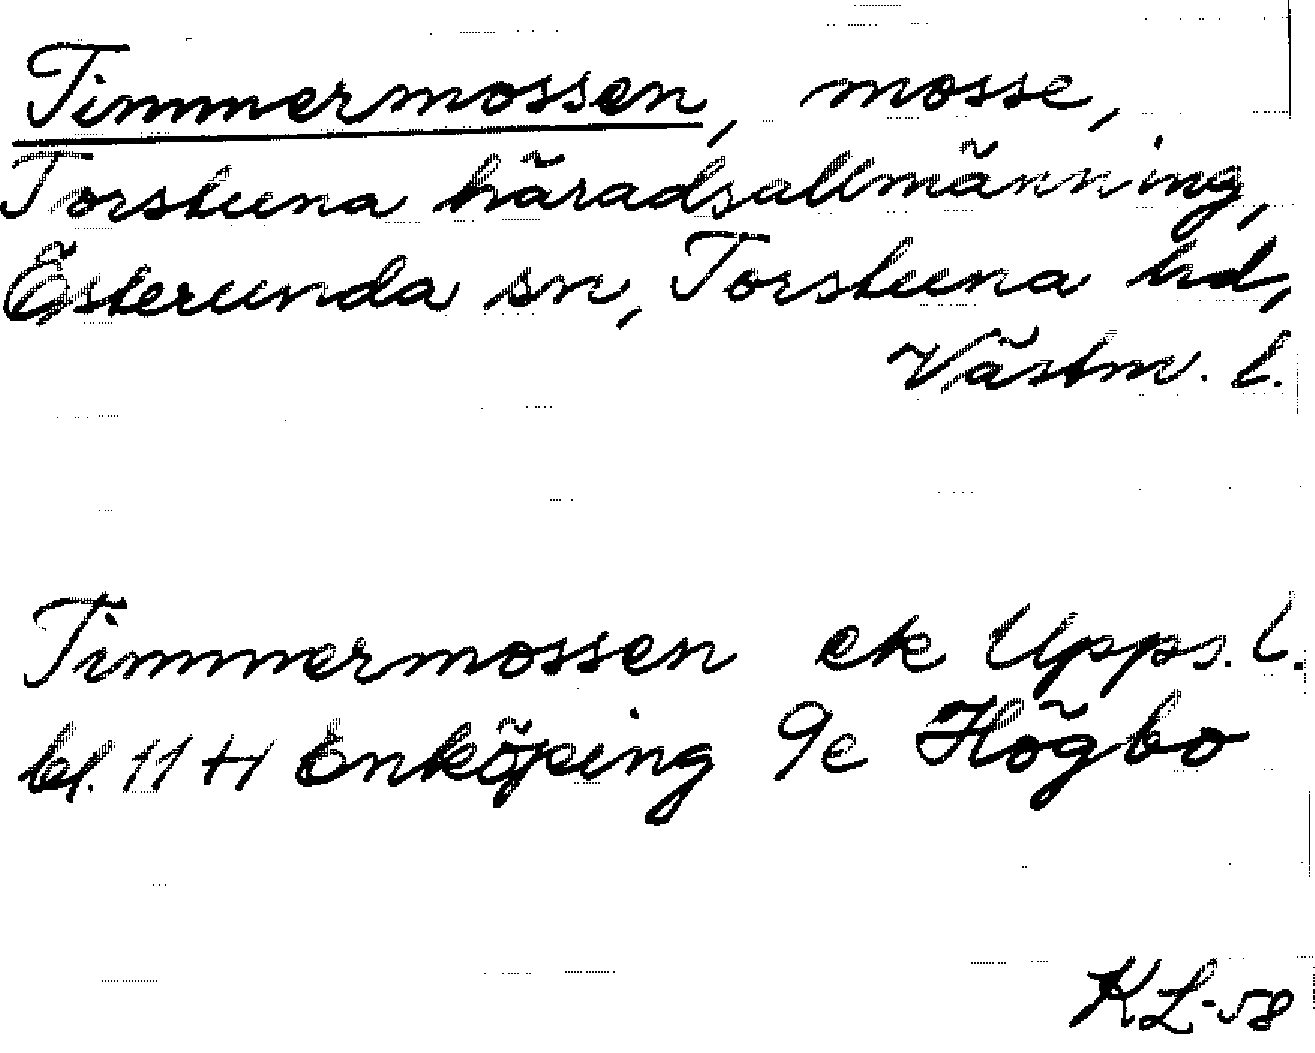 Timmermossen, mosse,
Torstuna häradsallmänning,
Österunda sn, Torstuna hd,
Västm. l.
Timmermossen ek Upps. l.
bl. 11 H Enköping 9e Högbo
KL-58